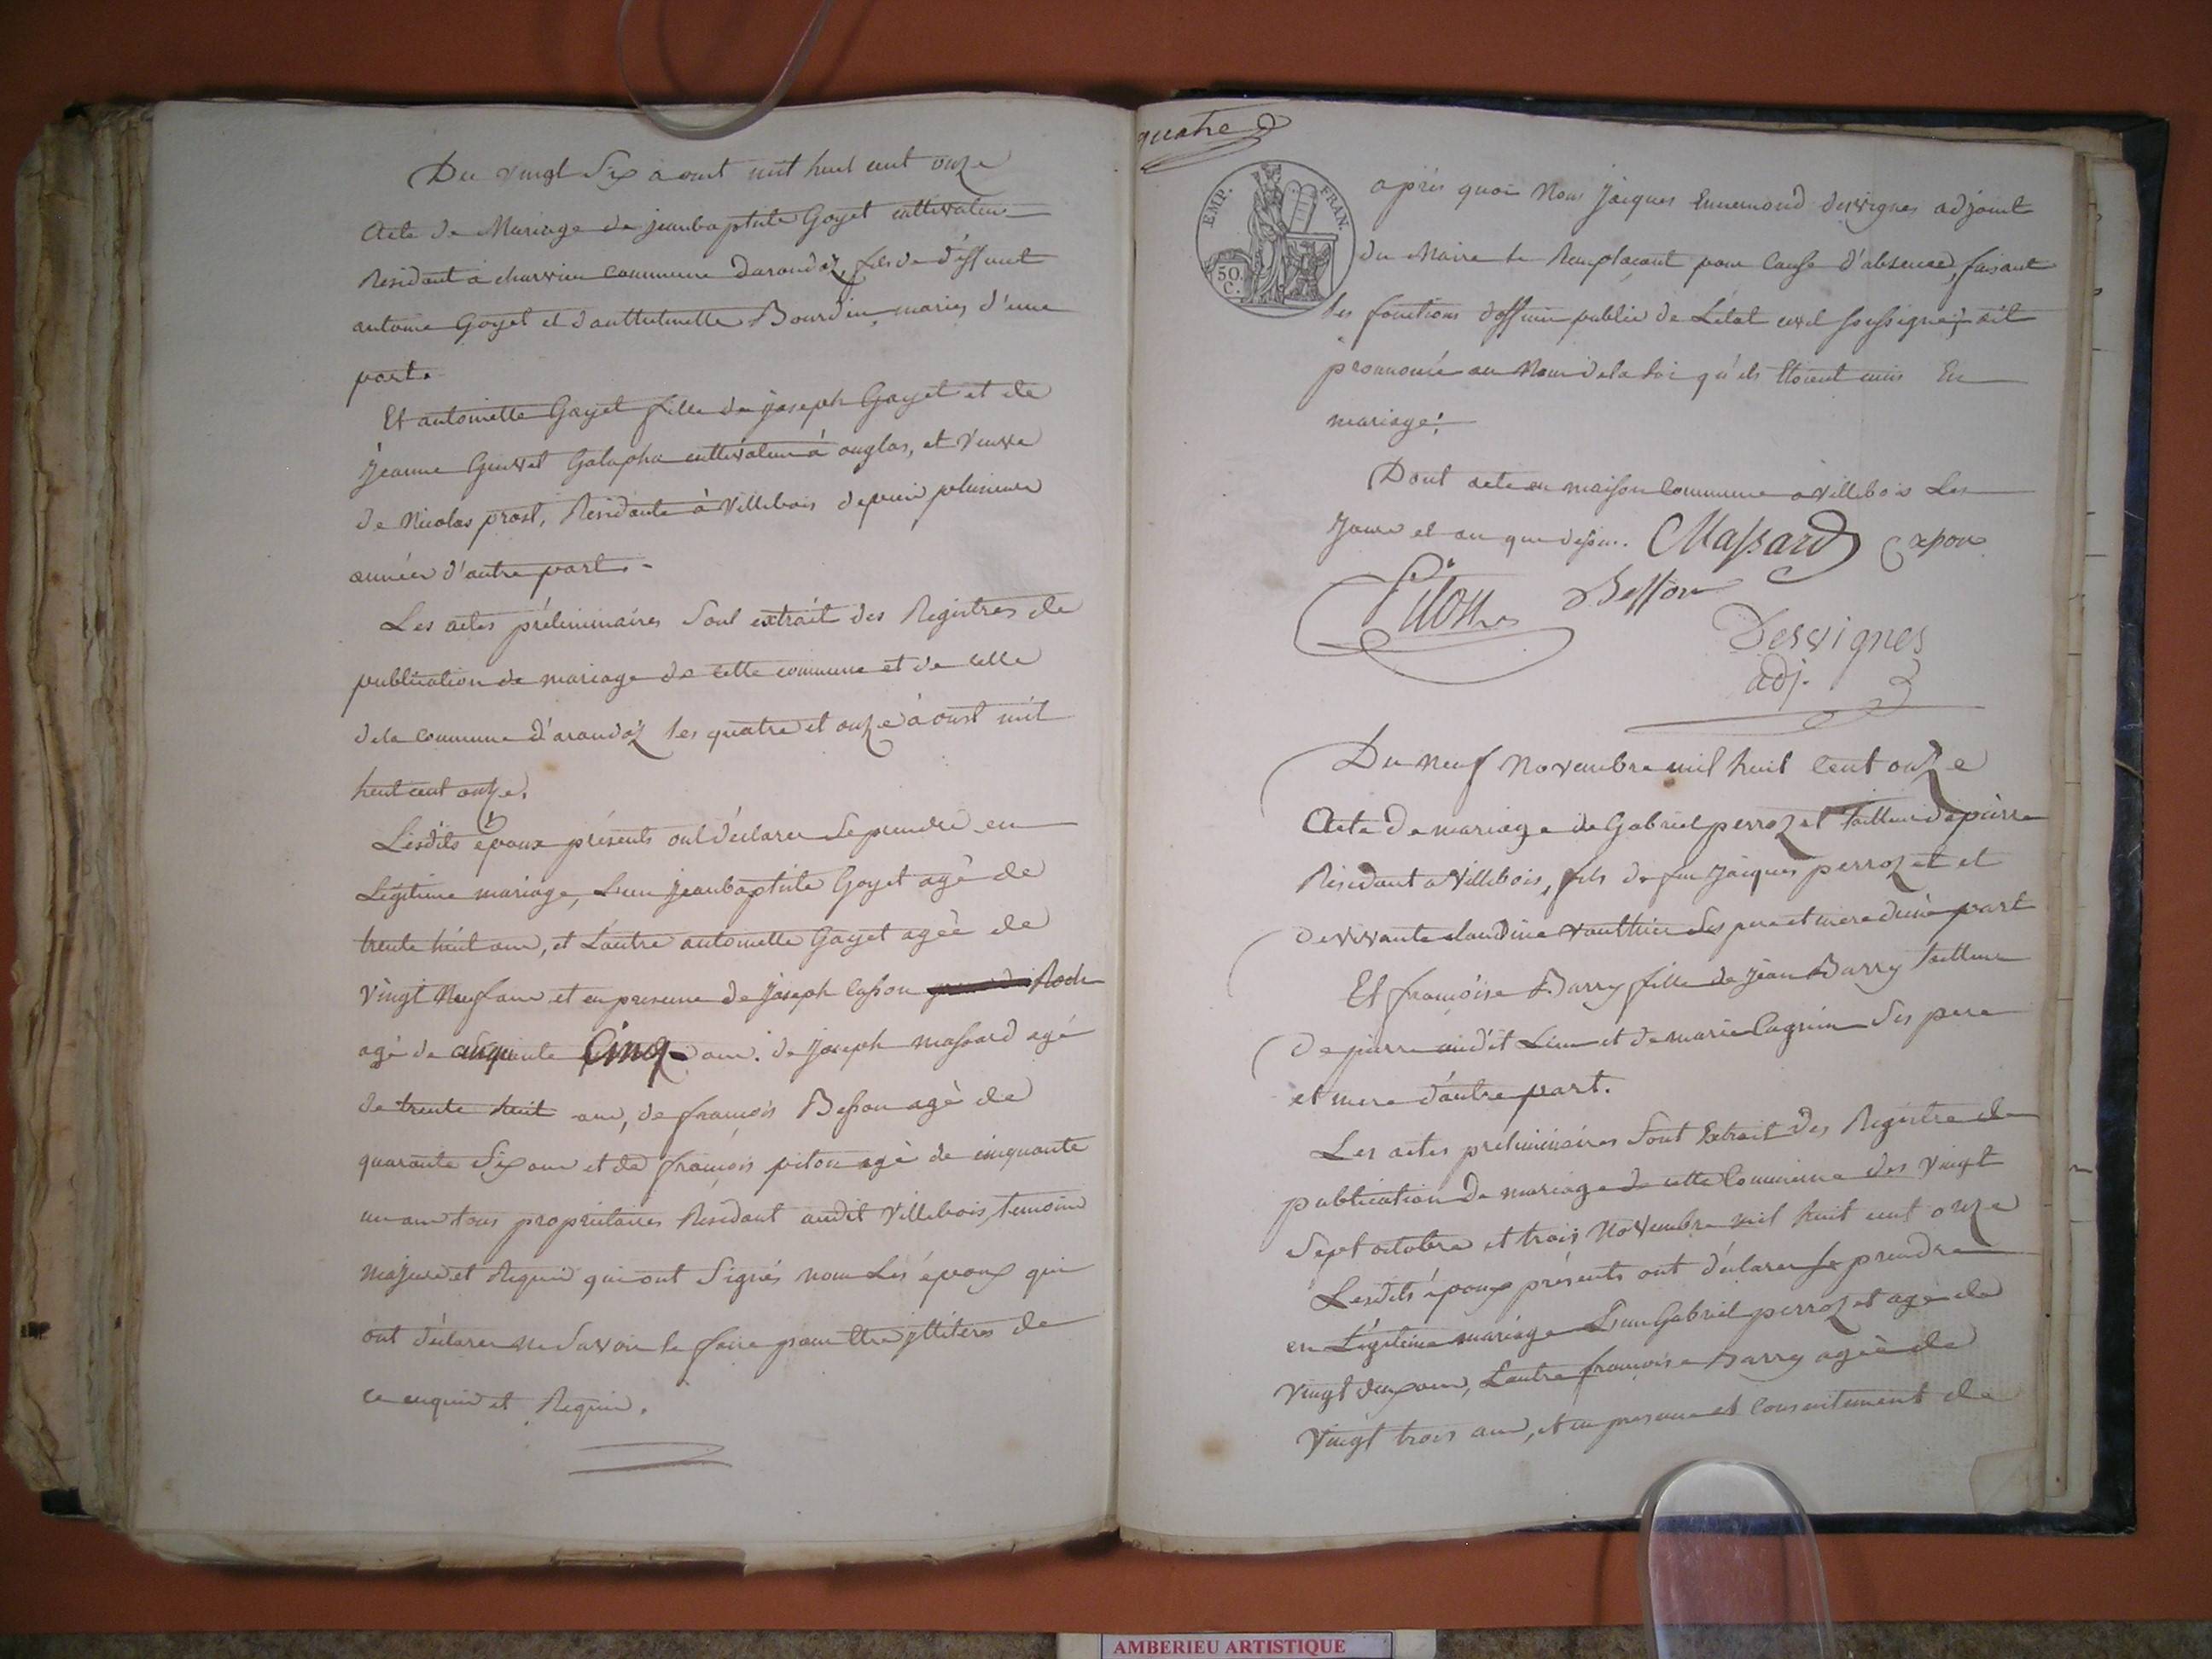 Du vingt Six aoust mil huit cent onze
Acte de Mariage de jeanbaptiste Goyet cultivateur
Residant à charvieu commune darandaz, fils de déffunt
antoine Goyet et danthelmette Bourdin, mariés d'une
part.
Et antoinette Gayet fille de joseph Gayet et de
jeanne Galapha cultivateur à ouglas, et veuve
de Nicolas prost, Residante à Villebois depuis plusieurs
années d'autre part. -
Les actes préliminaires Sont extrait des Registres de
publication de mariage de cette commune et de celle
dela commune d'arandaz les quatre et onze aoust mil
huit cent onze.
Lesdits époux présents ont déclarer Se prendre en
Légitime mariage, L'un jeanbaptiste Goyet agé de
trente huit ans, et L'autre antoinette Gayet agée de
vingt Neuf ans et en presence de joseph Cason Roch
agé de cinquante Cinq ans. de joseph massard agé
de trente huit ans, de françois Besson agé de
quarante Six ans et de françois piton agé de cinquante
un ans tous propriétaires Résidant audit Villebois, temoins
majeurs et Requis qui ont Signés non Les époux qui
ont déclarer ne Savoir le faire pour être illiteres de
ce enquis et Requis.
quatre
EMP. FRAN.
50. C.
après quoi Nous Jacques Ennemond desvignes adjoint
du Maire le Remplaçant pour Cause d'absence, faisant
les fonctions d'officier public de L'état civil soussigné, ait
prononcé au Nom dela Loi qu'ils étoient unis En
mariage;
Dont acte en maison Commune à Villebois Les
Jour et an que dessus. Massard Capon
Piton Besson
Desvignes
adj.
Du Neuf Novembre mil huit Cent onze
Acte de mariage de Gabriel perrozet Tailleur de pierre
Résidant a Villebois, fils de feu Jacques perrozet et
de vivante claudine vauthier Ses pere et mere d'une part
Et françoise Barry fille de Jean Barry tailleur
de pierre audit Lieu et de marie Cagnin Ses pere
et mere d'autre part.
Les actes préliminaires Sont Extrait des Registre de
publication de mariage de cette Commune des vingt
Sept octobre et trois Novembre mil huit cent onze
Lesdits époux présents ont déclarer se prendre
en Légitime mariage L'un Gabriel perrozet agé de
vingt deux ans, L'autre françoise Barry agée de
vingt trois ans, et en presence et Consentement de
AMBERIEU ARTISTIQUE